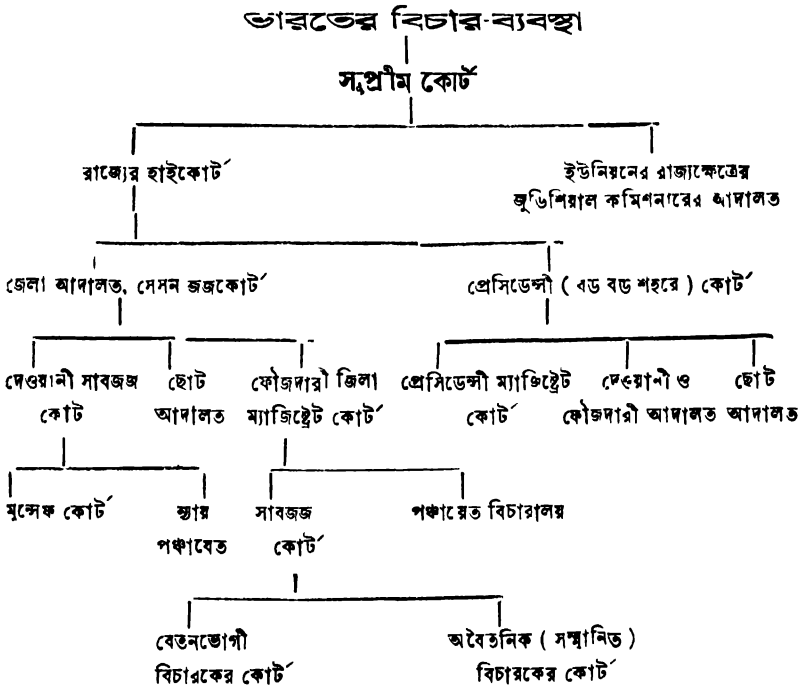 ভারতের বিচার-ব্যবস্থা
সুপ্রীম কোর্ট
রাজ্যের হাইকোর্ট
ইউনিয়নের রাজ্যক্ষেত্রের
জুডিশিয়াল কমিশনারের আদালত
জেলা আদালত, সেসন জজকোর্ট
প্রেসিডেন্সী ( বড বড শহরে ) কোর্ট
দেওয়ানী সাবজজ
কোর্ট
ছোট
আদালত
ফৌজদারী জিলা
ম্যাজিষ্ট্রেট কোর্ট
প্রেসিডেন্সী ম্যাজিষ্ট্রেট
কোর্ট
দেওয়ানী ও
ফৌজদারী আদালত
ছোট
আদালত
মুন্সেফ কোর্ট
ন্যায়
পঞ্চাযেত
সাবজজ
কোর্ট
পঞ্চায়েত বিচারালয়
বেতনভোগী
বিচারকের কোর্ট
অবৈতনিক ( সম্মানিত )
বিচারকের কোর্ট